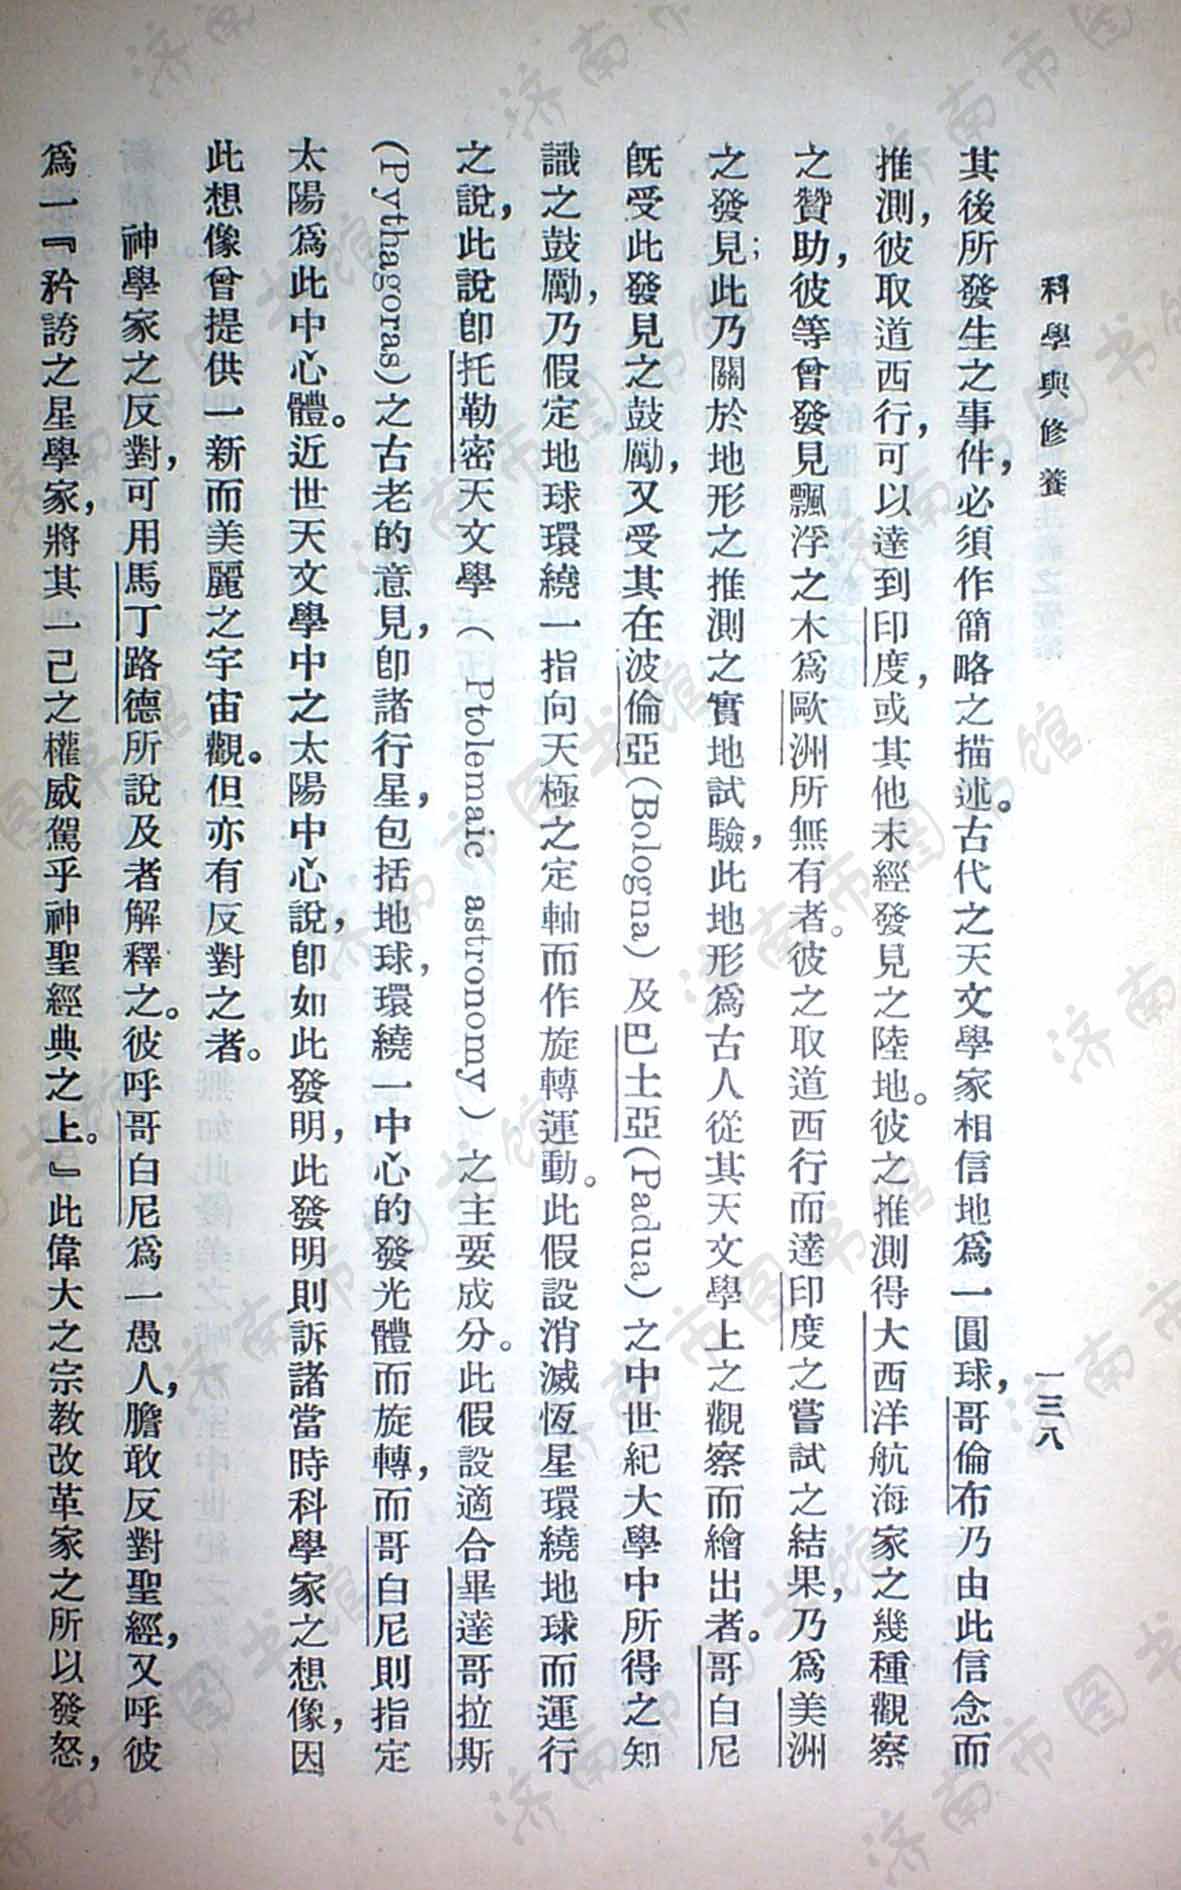 科學與修養
一三八
其後所發生之事件，必須作簡略之描述。古代之天文學家相信地爲一圓球，哥倫布乃由此信念而
推測，彼取道西行，可以達到印度，或其他未經發見之陸地。彼之推測得大西洋航海家之幾種觀察
之贊助，彼等曾發見飄浮之木爲歐洲所無有者。彼之取道西行而達印度之嘗試之結果，乃爲美洲
之發見；此乃關於地形之推測之實地試驗，此地形爲古人從其天文學上之觀察而繪出者。哥白尼
旣受此發見之鼓勵，又受其在波倫亞(Bologna)及巴士亞(Padua)之中世紀大學中所得之知
識之鼓勵，乃假定地球環繞一指向天極之定軸而作旋轉運動。此假設消滅恆星環繞地球而運行
之說，此說卽托勒密天文學(Ptolemaic astronomy)之主要成分。此假設適合畢達哥拉斯
(Pythagoras)之古老的意見，卽諸行星，包括地球，環繞一中心的發光體而旋轉，而哥白尼則指定
太陽爲此中心體。近世天文學中之太陽中心說，卽如此發明，此發明則訴諸當時科學家之想像，因
此想像曾提供一新而美麗之宇宙觀。但亦有反對之者。
神學家之反對，可用馬丁路德所說及者解釋之。彼呼哥白尼爲一愚人，膽敢反對聖經，又呼彼
爲一『矜誇之星學家，將其一己之權威駕乎神聖經典之上。』此偉大之宗教改革家之所以發怒，
济南市图书馆